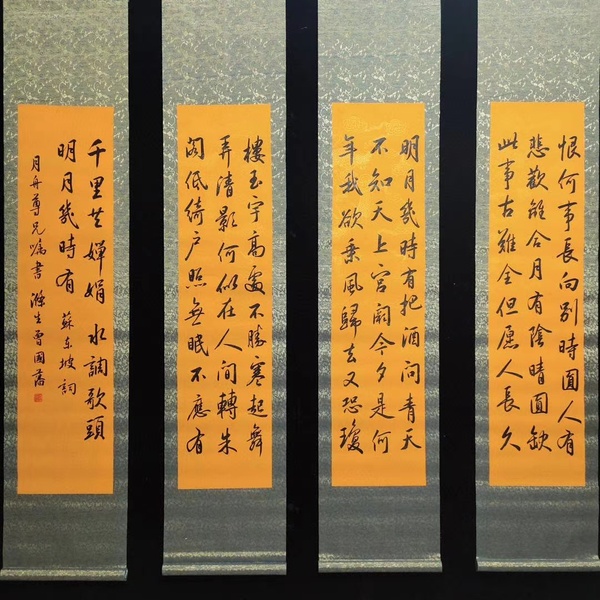 明月幾時有把酒問青天
不知天上宮闕今夕是何
年我欲乘風歸去又恐瓊
樓玉宇高處不勝寒起舞
弄清影何似在人間轉朱
閣低綺戶照無眠不應有
恨何事長向別時圓人有
悲歡離合月有陰晴圓缺
此事古難全但愿人長久
千里共嬋娟 水調歌頭
明月幾時有 蘇東坡詞
月舟尊兄囑書 滌生曾國藩